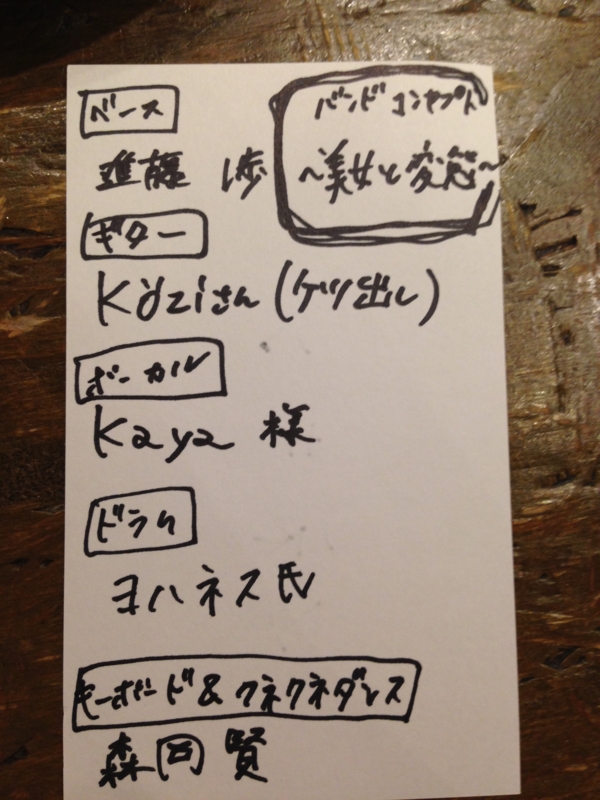 ベース
進藤 渉
バンドコンセプト
~美女と変態~
ギター
Közi さん (ケツ出し)
ボーカル
Kaya 様
ドラム
ヨハネス氏
キーボード & クネクネダンス
森岡 賢